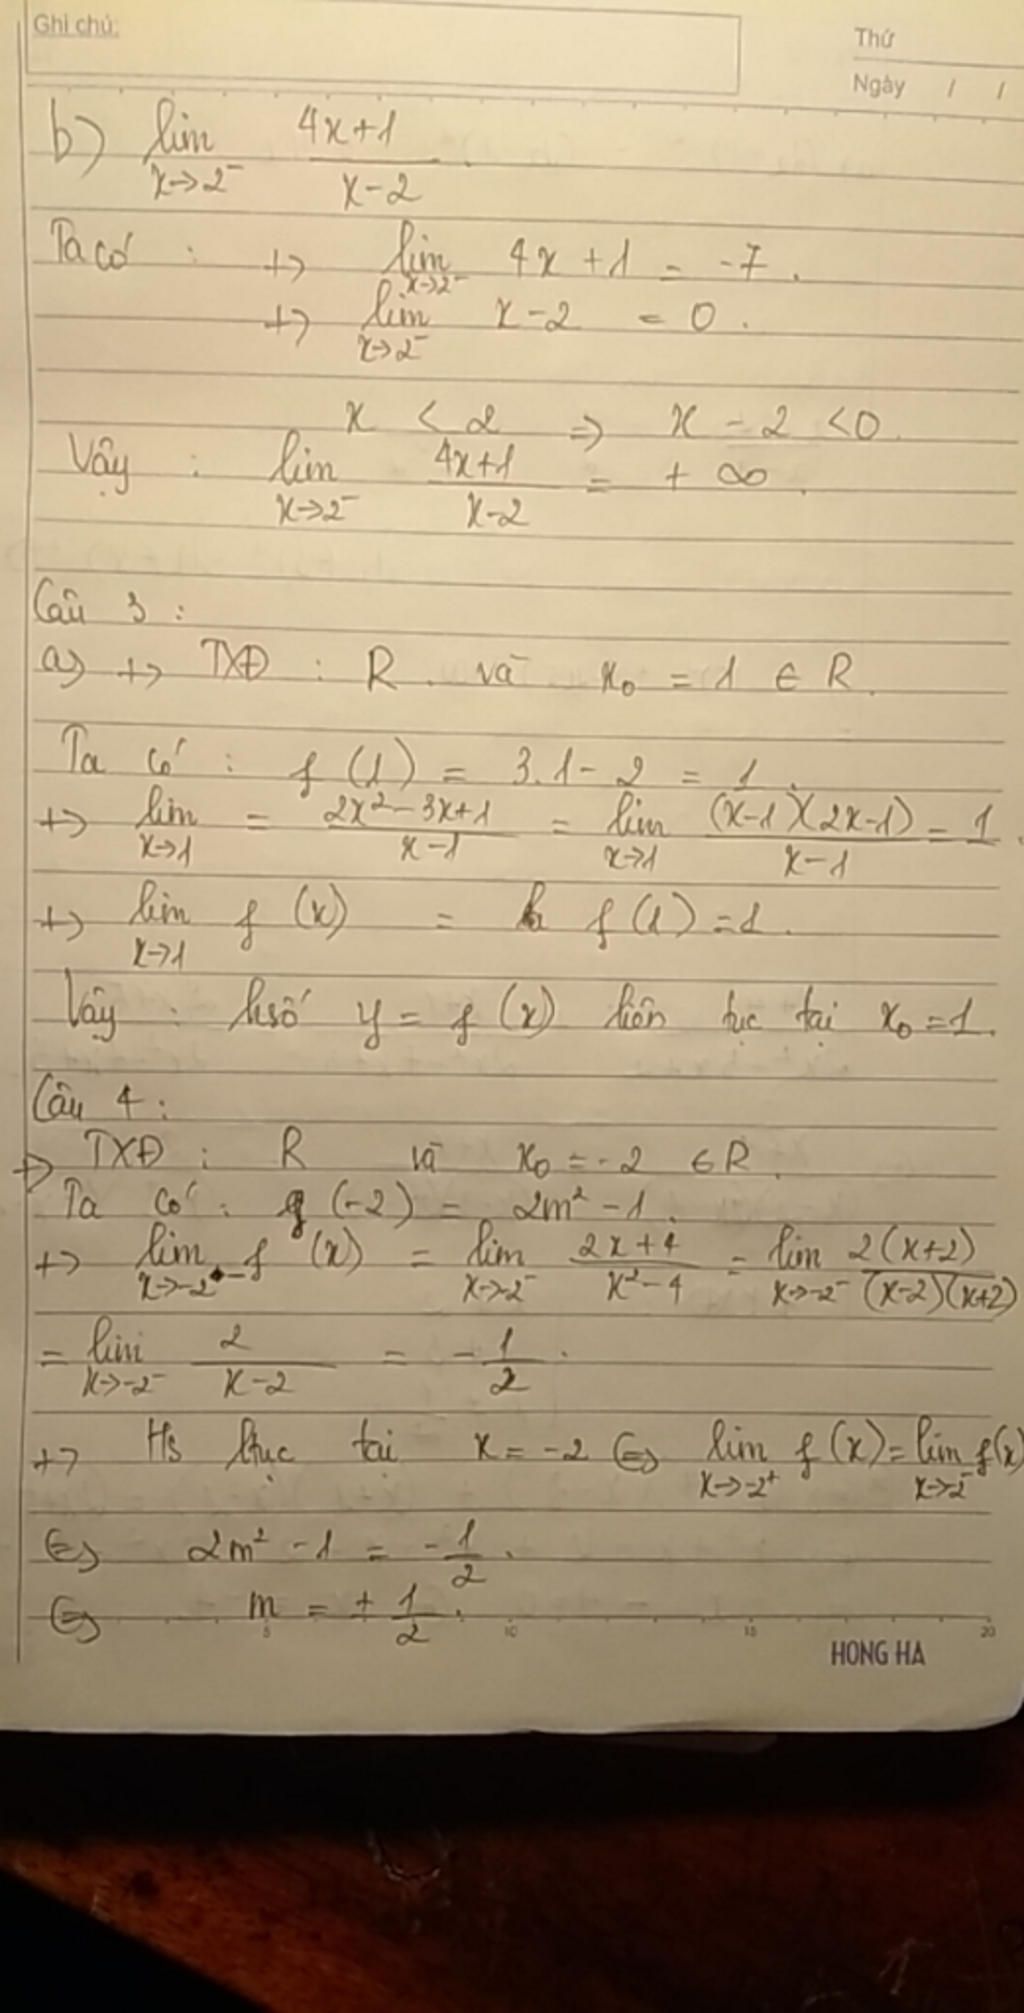 Ghi chú:
Thứ
Ngày / /
b) lim x→2⁻ (4x+1)/(x-2)
Ta có : +> lim x→2⁻ 4x + 1 = -7.
+> lim x→2⁻ x-2 = 0.
x < 2 ⇒ x - 2 <0.
Vậy : lim x→2⁻ (4x+1)/(x-2) = + ∞.
Câu 3 :
a) +> TXĐ : R. và x₀ = 1 ∈ R.
Ta có : f (1) = 3.1 - 2 = 1.
+> lim x→1 = (2x² - 3x+1)/(x-1) = lim x→1 (x-1)(2x-1)/(x-1) = 1.
+> lim x→1 f (x) = f (1) = 1.
Vậy : hsố y = f (x) liên tục tại x₀ = 1.
Câu 4 :
+> TXĐ : R và x₀ = -2 ∈ R.
Ta có : f (-2) = 2m² - 1.
+> lim x→-2⁻ f (x) = lim x→-2⁻ (2x+4)/(x²-4) = lim x→-2⁻ 2(x+2)/(x-2)(x+2)
= lim x→-2⁻ 2/(x-2) = -1/2.
+> Hs ltục tại x = -2 ⇔ lim x→-2⁺ f (x) = lim x→-2⁻ f(x)
⇔ 2m² - 1 = -1/2.
⇔ m = ± 1/2.
5 10 15 20
HONG HA